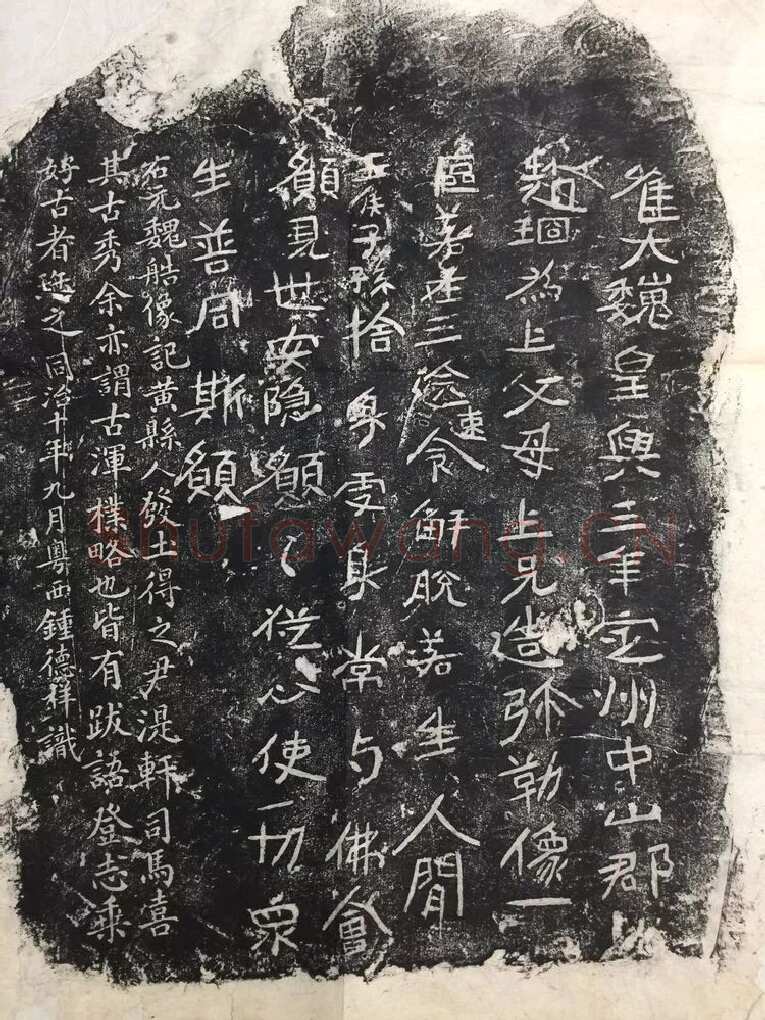 唯大魏皇興三年定州中山郡
趙埛為亡父母亡兄造弥勒像一
區若在三塗速令解脫若生人間
王侯子孫捨身受身常与佛會
願見世安隐願〻從心使一切眾
生普同斯願
右元魏皓像記黃縣人發土得之尹湜軒司馬喜
其古秀余亦謂古渾樸略也皆有跋語登志乘
好古者進之同治十年九月粵西鍾德祥識
Shufawang.CN